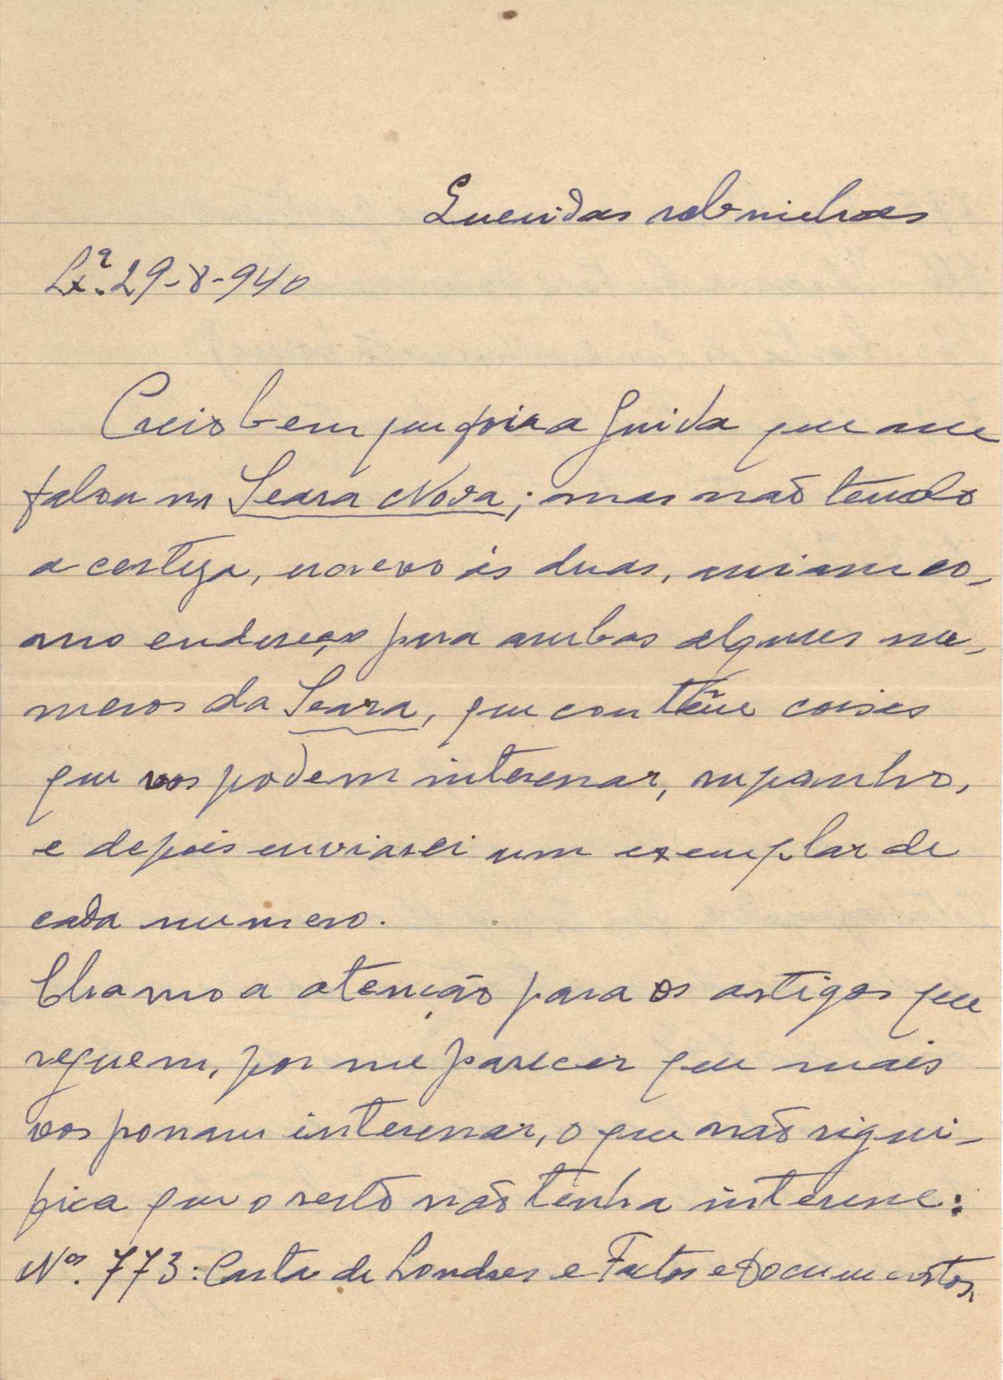 Queridas sobrinhas
Lxª. 29-8-940
Creio bem que foi a Guida que me
falou na Seara Nova; mas não tendo
a certeza, escrevo às duas, enviam co-
mo endereço para ambas alguns nu-
meros da Seara, que contêm coisas
que vos podem interessar, suponho,
e depois enviarei um exemplar de
cada numero.
Chamo a atenção para os artigos que
seguem, por me parecer que mais
vos possam interessar, o que não signi-
fica que o resto não tenha interesse:
Nos. 773: Carta de Londres e Factos e Documentos,